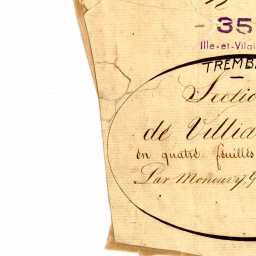 35
Ille-et-Vilai
TREMB
Sectio
de Villia
en quatre feuilles
Par Monsieur G